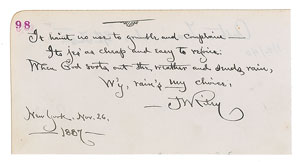 98
It haint no use to grumble and complane —
Its jes' as cheap and easy to rejoice.
When God sorts out the weather and sends rain,
W'y, rain's my choice,
— JW Riley
New York, Nov. 26,
1887 —